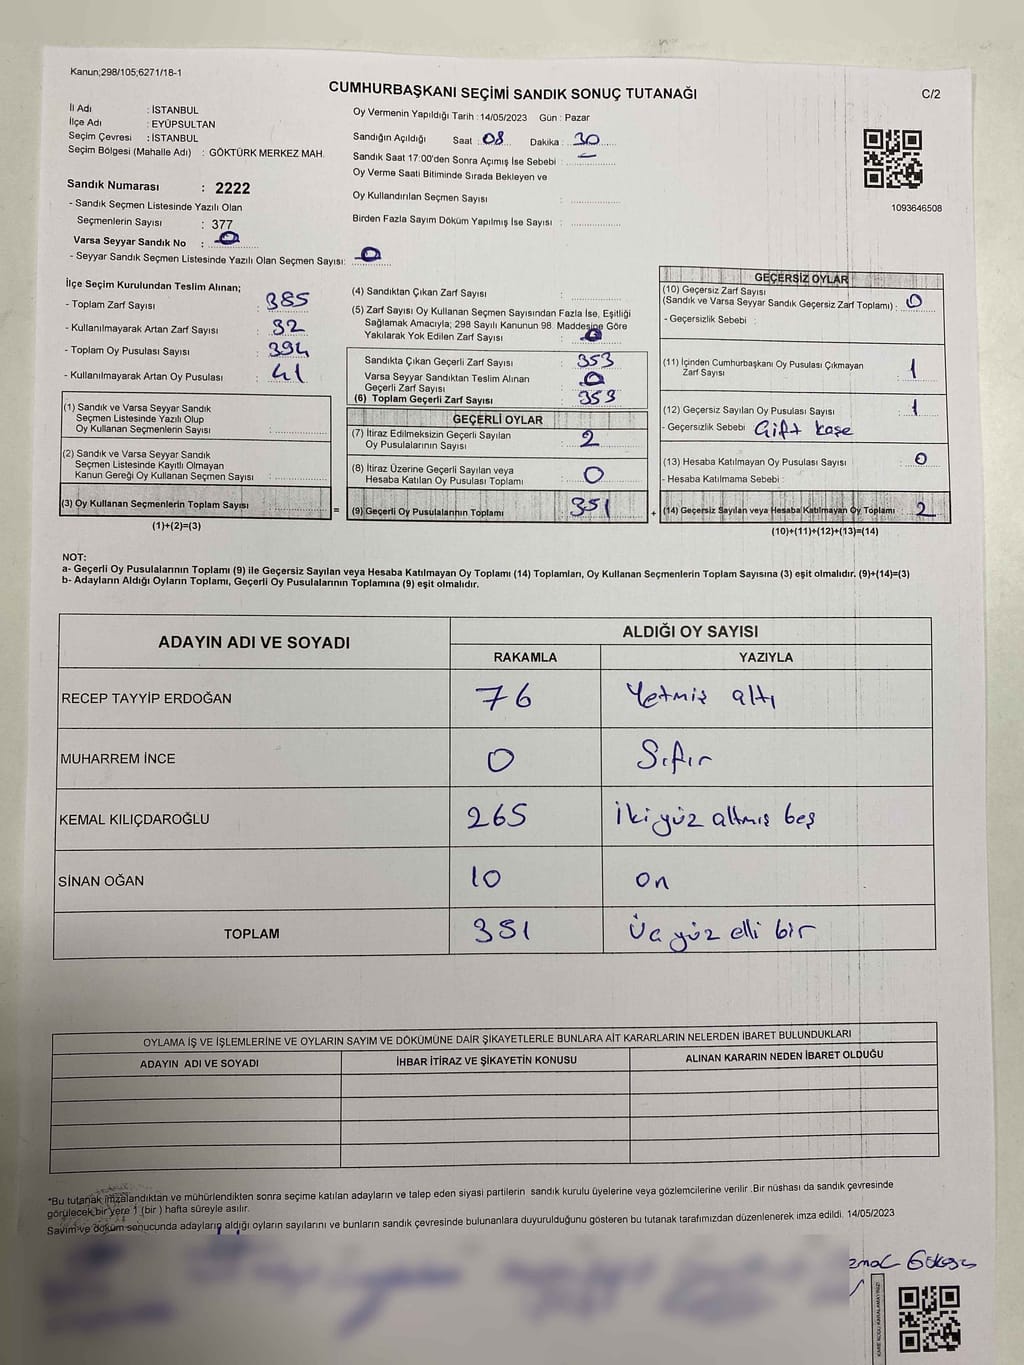 Kanun;298/105;6271/18-1
CUMHURBAŞKANI SEÇİMİ SANDIK SONUÇ TUTANAĞI
C/2
İl Adı : İSTANBUL
İlçe Adı : EYÜPSULTAN
Seçim Çevresi : İSTANBUL
Seçim Bölgesi (Mahalle Adı) : GÖKTÜRK MERKEZ MAH.
Oy Vermenin Yapıldığı Tarih : 14/05/2023 Gün : Pazar
Sandığın Açıldığı Saat : 08 Dakika : 30
Sandık Saat 17:00'den Sonra Açımış İse Sebebi : –
Oy Verme Saati Bitiminde Sırada Bekleyen ve
Oy Kullandırılan Seçmen Sayısı :
Birden Fazla Sayım Döküm Yapılmış İse Sayısı :
1093646508
Sandık Numarası : 2222
- Sandık Seçmen Listesinde Yazılı Olan
Seçmenlerin Sayısı : 377
Varsa Seyyar Sandık No : 0
- Seyyar Sandık Seçmen Listesinde Yazılı Olan Seçmen Sayısı: 0
İlçe Seçim Kurulundan Teslim Alınan;
- Toplam Zarf Sayısı : 385
- Kullanılmayarak Artan Zarf Sayısı : 32
- Toplam Oy Pusulası Sayısı : 394
- Kullanılmayarak Artan Oy Pusulası : 41
(1) Sandık ve Varsa Seyyar Sandık
Seçmen Listesinde Yazılı Olup
Oy Kullanan Seçmenlerin Sayısı :
(2) Sandık ve Varsa Seyyar Sandık
Seçmen Listesinde Kayıtlı Olmayan
Kanun Gereği Oy Kullanan Seçmen Sayısı :
(3) Oy Kullanan Seçmenlerin Toplam Sayısı :
(1)+(2)=(3)
=
(4) Sandıktan Çıkan Zarf Sayısı :
(5) Zarf Sayısı Oy Kullanan Seçmen Sayısından Fazla İse, Eşitliği
Sağlamak Amacıyla; 298 Sayılı Kanunun 98. Maddesine Göre
Yakılarak Yok Edilen Zarf Sayısı : 0
Sandıkta Çıkan Geçerli Zarf Sayısı : 353
Varsa Seyyar Sandıktan Teslim Alınan
Geçerli Zarf Sayısı : 0
(6) Toplam Geçerli Zarf Sayısı : 353
GEÇERLİ OYLAR
(7) İtiraz Edilmeksizin Geçerli Sayılan
Oy Pusulalarının Sayısı : 2
(8) İtiraz Üzerine Geçerli Sayılan veya
Hesaba Katılan Oy Pusulası Toplamı : 0
(9) Geçerli Oy Pusulalarının Toplamı : 351
+
GEÇERSİZ OYLAR
(10) Geçersiz Zarf Sayısı
(Sandık ve Varsa Seyyar Sandık Geçersiz Zarf Toplamı) : 0
- Geçersizlik Sebebi :
(11) İçinden Cumhurbaşkanı Oy Pusulası Çıkmayan
Zarf Sayısı : 1
(12) Geçersiz Sayılan Oy Pusulası Sayısı : 1
- Geçersizlik Sebebi : Çift kaşe
(13) Hesaba Katılmayan Oy Pusulası Sayısı : 0
- Hesaba Katılmama Sebebi :
(14) Geçersiz Sayılan veya Hesaba Katılmayan Oy Toplamı : 2
(10)+(11)+(12)+(13)=(14)
NOT:
a- Geçerli Oy Pusulalarının Toplamı (9) ile Geçersiz Sayılan veya Hesaba Katılmayan Oy Toplamı (14) Toplamları, Oy Kullanan Seçmenlerin Toplam Sayısına (3) eşit olmalıdır. (9)+(14)=(3)
b- Adayların Aldığı Oyların Toplamı, Geçerli Oy Pusulalarının Toplamına (9) eşit olmalıdır.
ADAYIN ADI VE SOYADI ALDIĞI OY SAYISI
RAKAMLA YAZIYLA
RECEP TAYYİP ERDOĞAN 76 Yetmiş altı
MUHARREM İNCE 0 Sıfır
KEMAL KILIÇDAROĞLU 265 İkiyüz altmış beş
SİNAN OĞAN 10 on
TOPLAM 351 Üç yüz elli bir
OYLAMA İŞ VE İŞLEMLERİNE VE OYLARIN SAYIM VE DÖKÜMÜNE DAİR ŞİKAYETLERLE BUNLARA AİT KARARLARIN NELERDEN İBARET BULUNDUKLARI
ADAYIN ADI VE SOYADI İHBAR İTİRAZ VE ŞİKAYETİN KONUSU ALINAN KARARIN NEDEN İBARET OLDUĞU
*Bu tutanak imzalandıktan ve mühürlendikten sonra seçime katılan adayların ve talep eden siyasi partilerin sandık kurulu üyelerine veya gözlemcilerine verilir .Bir nüshası da sandık çevresinde
görülecek bir yere 1 (bir ) hafta süreyle asılır.
Sayım ve döküm sonucunda adayların aldığı oyların sayılarını ve bunların sandık çevresinde bulunanlara duyurulduğunu gösteren bu tutanak tarafımızdan düzenlenerek imza edildi. 14/05/2023
KARE KODU KARALAMAYINIZ!